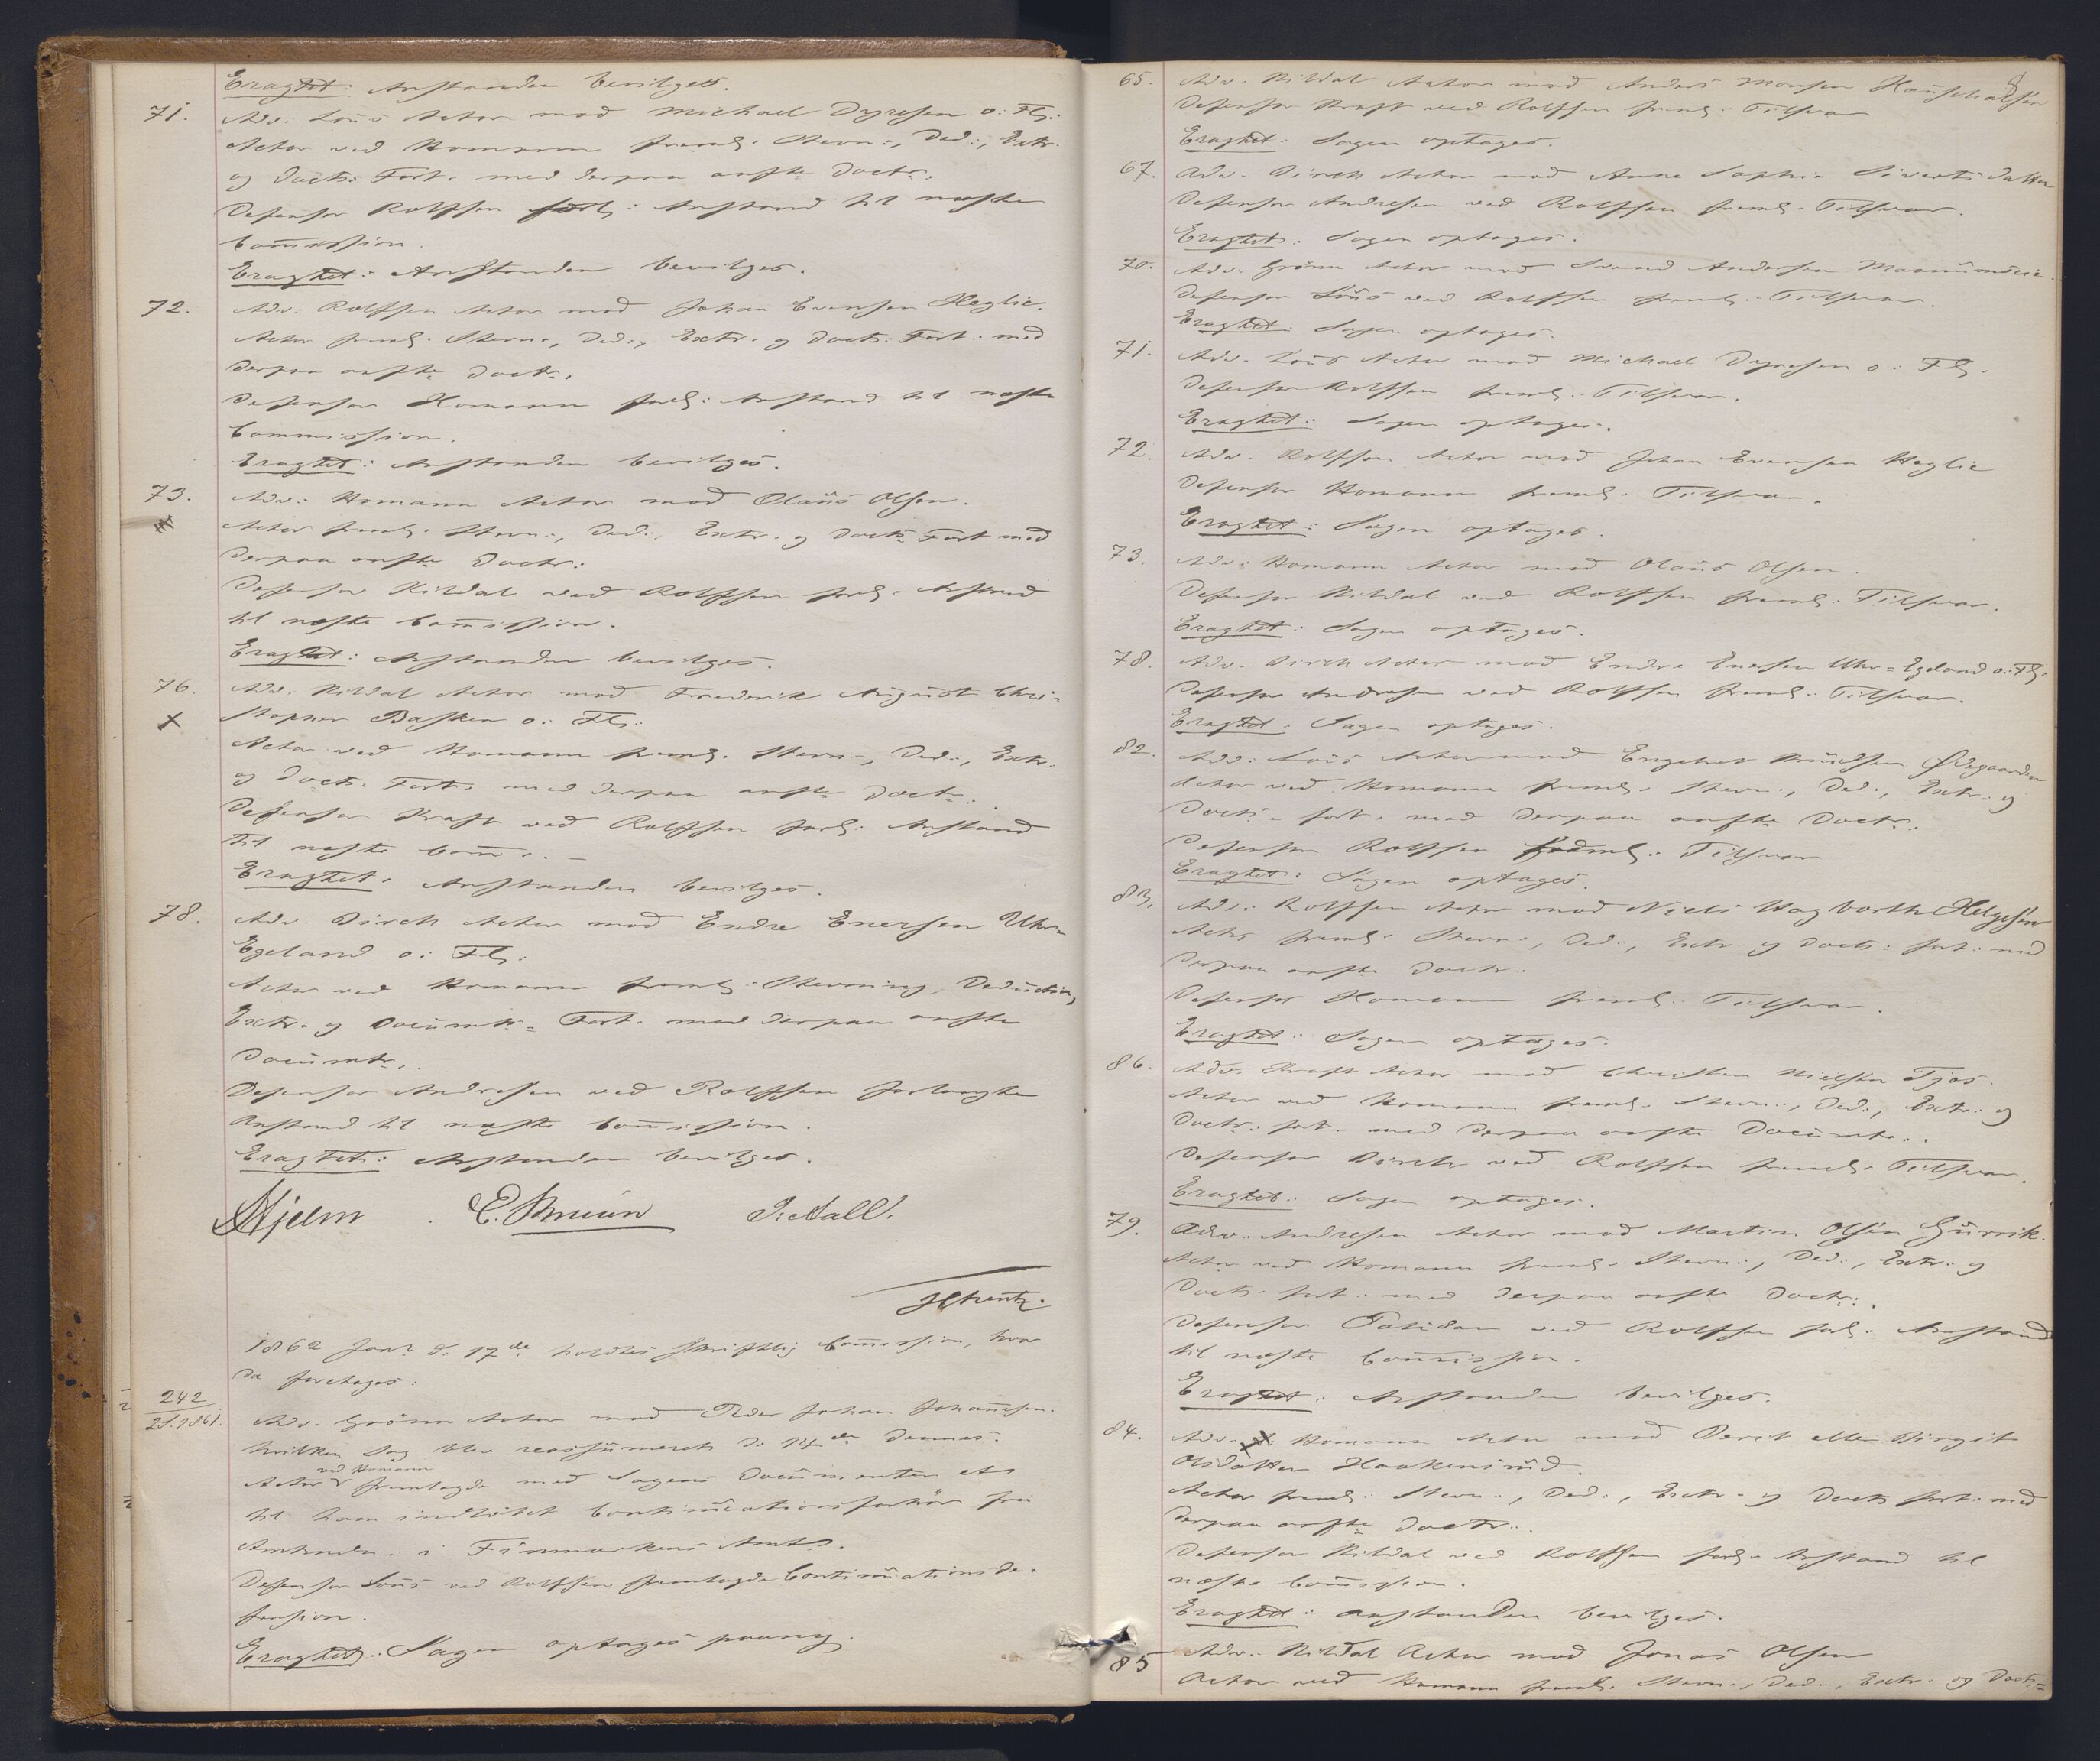 Eragtet: Anstanden bevilges.
71. Adv: Löus Actor mod Michael Dyresen o: Fl:
Actor ved Homann freml: Stevn:, Ded:, Extr:
og Docts: Fort: med derpaa anfte Doctr:
Defensor Rolffsen forl: Anstand til næste
Commission.
Eragtet: Anstanden bevilges.
72. Adv: Rolffsen Actor mod Johan Evensen Heglie.
Actor freml: Stevn:, Ded:, Extr: og Docts: Fort: med
derpaa anfte Doctr:
Defensor Homann forl: Anstand til næste
Commission.
Eragtet: Anstanden bevilges.
73. Adv: Homann Actor mod Olaus Olsen.
Actor freml: Stevn:, Ded:, Extr: og Docts: Fort med
derpaa anfte Doctr:
Defensor Kildal ved Rolffsen forl: Anstand
til næste Commission.
Eragtet: Anstanden bevilges.
76. Adv. Kildal Actor mod Frederik August Chri-
stopher Basken o: Fl:
Actor ved Homann freml: Stevn:, Ded:, Extr:
og Docts. Fort: med derpaa anfte Doctr:
Defensor Kraft ved Rolffsen forl: Anstand
til næste Comm:.
Eragtet: Anstanden bevilges.
78. Adv. Dirch Actor mod Endre Enersen Uhr-
Egeland o: Fl:
Actor ved Homann freml: Stevning, Deduction,
Extr. og Documts= Fort. med derpaa anfte
Documtr.
Defensor Andresen ved Rolffsen forlangte
Anstand til næste Commission.
Eragtet: Anstanden bevilges.
Hjelm E. Bruun J. Aall.
1862 Janr d: 17de holdtes skriftlig Commission, hvor
da foretoges:
242
28.1861. Adv. Grönn Actor mod Peder Johan Johannesen.
hvilken Sag blev reassumeret d: 14de dennes.
Actor ved Homann fremlagde med Sagens Documenter et
til ham indløbet Continuationsforhör fra
Amtmdn: i Finmarkens Amt.
Defensor Löus ved Rolffsen fremlagde Continuationsde-
fension.
Eragtet: Sagen optages paany.
65. Adv. Kildal Actor mod Anders Monsen
Defensor Kraft ved Rolffsen freml: Tilsvar
Eragtet: Sagen optages.
67. Adv. Dirch Actor mod Anne Sophie Sivertsdatter
Defensor Andresen ved Rolffsen freml: Tilsvar.
Eragtet: Sagen optages.
70. Adv. Grönn Actor mod Svend Andersen
Defensor Löus ved Rolffsen freml: Tilsvar.
Eragtet: Sagen optages.
71. Adv. Löus Actor mod Michael Dyresen o: Fl:
Defensor Rolffsen freml: Tilsvar.
Eragtet: Sagen optages.
72. Adv. Rolffsen Actor mod Johan Evensen Heglie
Defensor Homann freml: Tilsvar.
Eragtet: Sagen optages.
73. Adv: Homann Actor mod Olaus Olsen.
Defensor Kildal ved Rolffsen freml: Tilsvar.
Eragtet: Sagen optages.
78. Adv. Dirch Actor mod Endre Enersen Uhr=Egeland o: Fl:
Defensor Andresen ved Rolffsen freml: Tilsvar.
Eragtet: Sagen optages.
82. Adv: Löus Actor mod Engebret Knudsen Ødegaarden
Actor ved Homann freml: Stevn:, Ded:, Extr: og
Docts= fort: med derpaa anfte Doctr:
Defensor Rolffsen freml: Tilsvar
Eragtet: Sagen optages.
83. Adv: Rolffsen Actor mod Niels Hagbarth Helgesen
Actor freml: Stevn:, Ded:, Extr: og Docts: fort: med
derpaa anfte Doctr:
Defensor Homann freml: Tilsvar.
Eragtet: Sagen optages.
86. Adv: Kraft Actor mod Christen Nielsen Tjos.
Actor ved Homann freml: Stevn:, Ded:, Extr: og
Docts: fort: med derpaa anfte Documtr:
Defensor Dirch ved Rolffsen freml: Tilsvar.
Eragtet: Sagen optages.
79. Adv. Andresen Actor mod Martin Olsen
Actor ved Homann freml: Stevn:, Ded:, Extr: og
Docts fort: med derpaa anfte Doctr:
Defensor ved Rolffsen forl: Anstand
til næste Commission.
Eragtet: Anstanden bevilges.
84. Adv: Homann Actor mod Berit eller Birgit
Olsdatter Haakensrud.
Actor freml: Stevn:, Ded:, Extr: og Docts fort: med
derpaa anfte Doctr:
Defensor Kildal ved Rolffsen forl: Anstand til
næste Commission.
Eragtet: Anstanden bevilges.
85 Adv. Kildal Actor mod Jonas Olsen
Actor ved Homann freml: Stevn:, Ded:, Extr: og Docts=